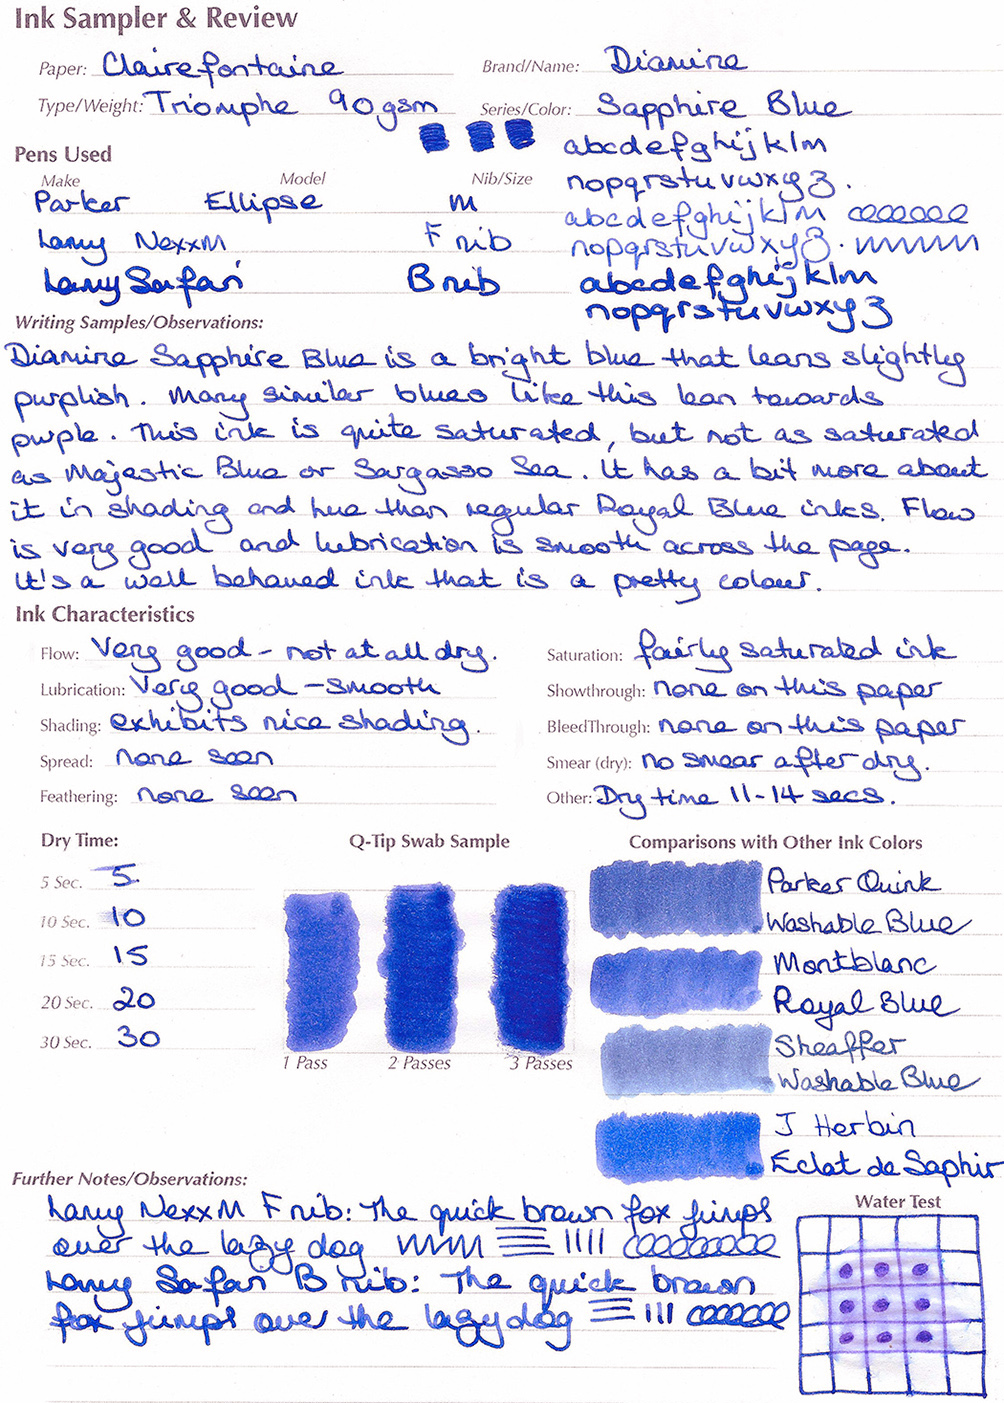 Ink Sampler & Review
Paper: Clairefontaine
Brand/Name: Diamine
Type/Weight: Triomphe 90gsm
Series/Color: Sapphire Blue
abcdefghijklm
nopqrstuvwxyz.
Pens Used
Make Model Nib/Size
Parker Ellipse M
abcdefghijklm
Lamy NexxM F nib
nopqrstuvwxyz.
Lamy Safari B nib
abcdefghijklm
nopqrstuvwxyz
Writing Samples/Observations:
Diamine Sapphire Blue is a bright blue that leans slightly
purplish. Many similar blues like this lean towards
purple. This ink is quite saturated, but not as saturated
as Majestic Blue or Sargasso Sea. It has a bit more about
it in shading and hue than regular Royal Blue inks. Flow
is very good and lubrication is smooth across the page.
It's a well behaved ink that is a pretty colour.
Ink Characteristics
Flow: Very good - not at all dry.
Saturation: fairly saturated ink
Lubrication: Very good - smooth
Showthrough: none on this paper
Shading: exhibits nice shading.
BleedThrough: none on this paper
Spread: none seen
Smear (dry): no smear after dry.
Feathering: none seen
Other: Dry time 11-14 secs.
Dry Time:
5 Sec. 5
10 Sec. 10
15 Sec. 15
20 Sec. 20
30 Sec. 30
Q-Tip Swab Sample
1 Pass 2 Passes 3 Passes
Comparisons with Other Ink Colors
Parker Quink
Washable Blue
Montblanc
Royal Blue
Sheaffer
Washable Blue
J Herbin
Eclat de Saphir
Further Notes/Observations:
Lamy NexxM F nib: The quick brown fox jumps
over the lazy dog
Lamy Safari B nib: The quick brown
fox jumps over the lazy dog
Water Test